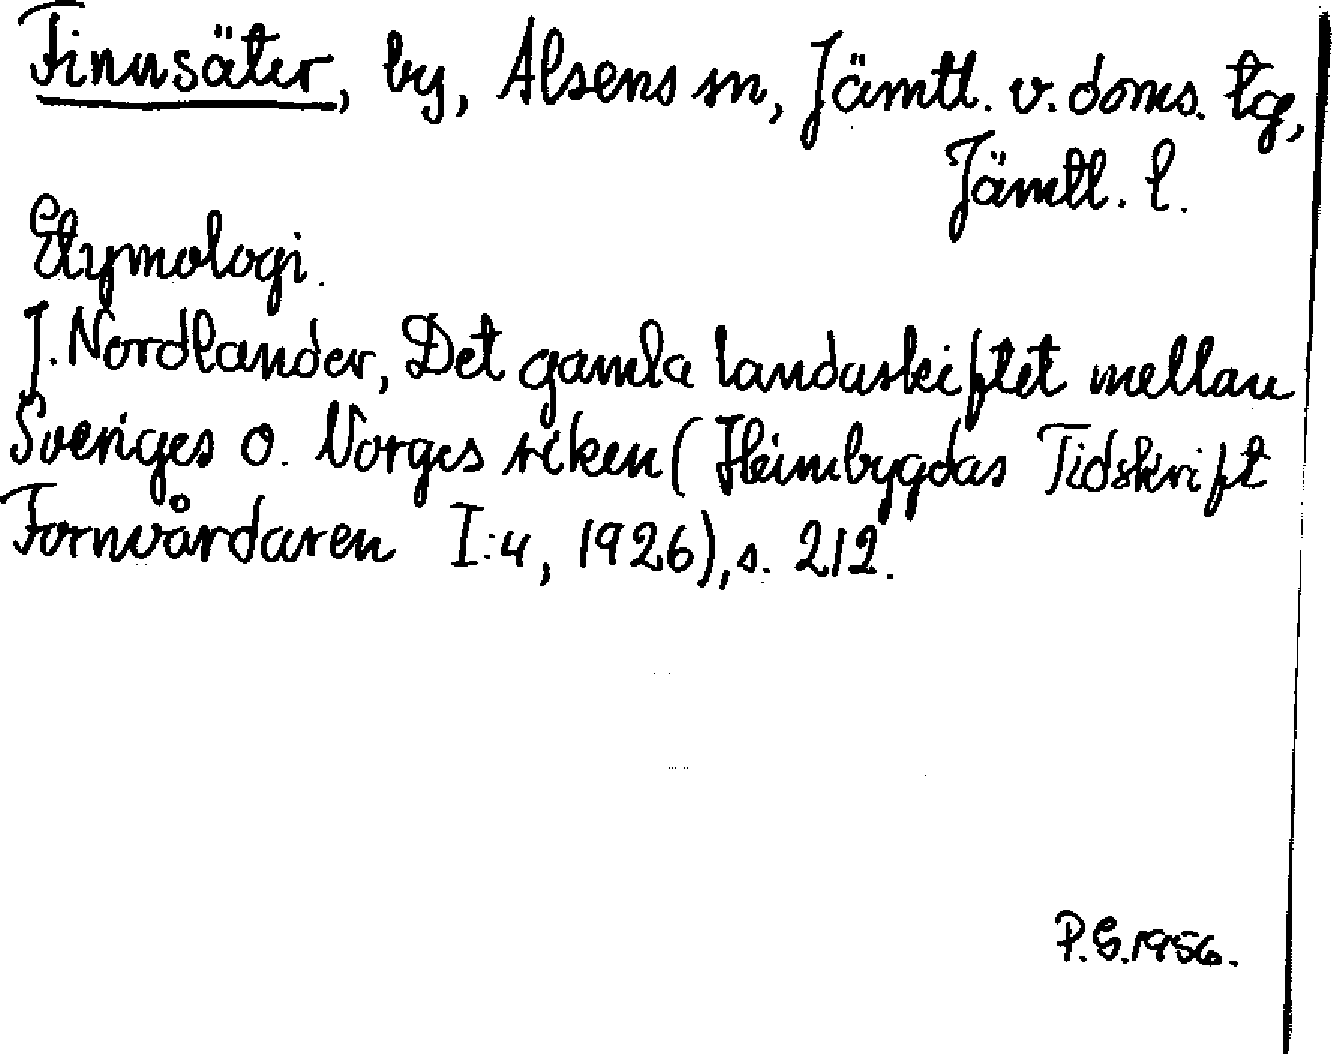 Finnsäter, by, Alsens sn, Jämtl. v. doms. tg,
Jämtl. l.
Etymologi.
J. Nordlander, Det gamla landaskiftet mellan
Sveriges o. Norges riken (Heimbygdas Tidskrift
Fornvårdaren I:4, 1926), s. 212.
P.S. 1956.